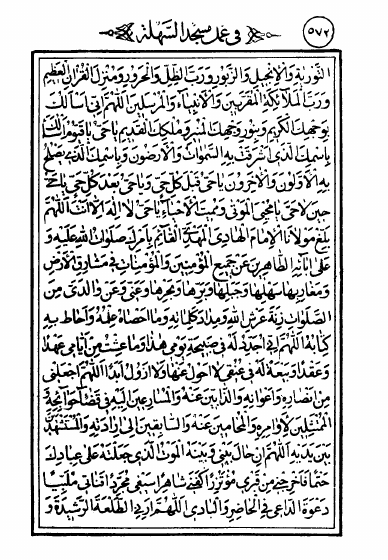 في عمل مسجد السهلة
٥٧٢
التورية والانجيل والزبور ورب الظل والحرور ومنزل القران العظيم
ورب الملائكة المقربين والانبياء والمرسلين اللهم اني اسالك
بوجهك الكريم وبنور وجهك المنير وملكك القديم يا حي يا قيوم اسالك
باسمك الذي اشرقت به السموات والارضون وباسمك الذي يصلح
به الاولون والاخرون يا حي قبل كل حي ويا حي بعد كل حي يا حي
حين لا حي يا محيي الموتى ومميت الاحياء يا حي لا اله الا انت اللهم
بلغ مولانا الامام الهادي المهدي القائم بامرك صلوات الله عليه و
على ابائه الطاهرين عن جميع المؤمنين والمؤمنات في مشارق الارض
ومغاربها سهلها وجبلها وبرها وبحرها وعني وعن والدي من
الصلوات زنة عرش الله ومداد كلماته وما احصاه علمه واحاط به
كتابه اللهم اني اجدد له في صبيحة يومي هذا وما عشت من ايامي عهدا
وعقدا وبيعة له في عنقي لا احول عنها ولا ازول ابدا اللهم اجعلني
من انصاره واعوانه والذابين عنه والمسارعين اليه في قضاء حوائجه
الممتثلين لاوامره والمحامين عنه والسابقين الى ارادته والمستشهدين
بين يديه اللهم ان حال بيني وبينه الموت الذي جعلته على عبادك
حتما فاخرجني من قبري مؤتزرا كفني شاهرا سيفي مجردا قناتي ملبيا
دعوة الداعي في الحاضر والبادي اللهم ارني الطلعة الرشيدة و